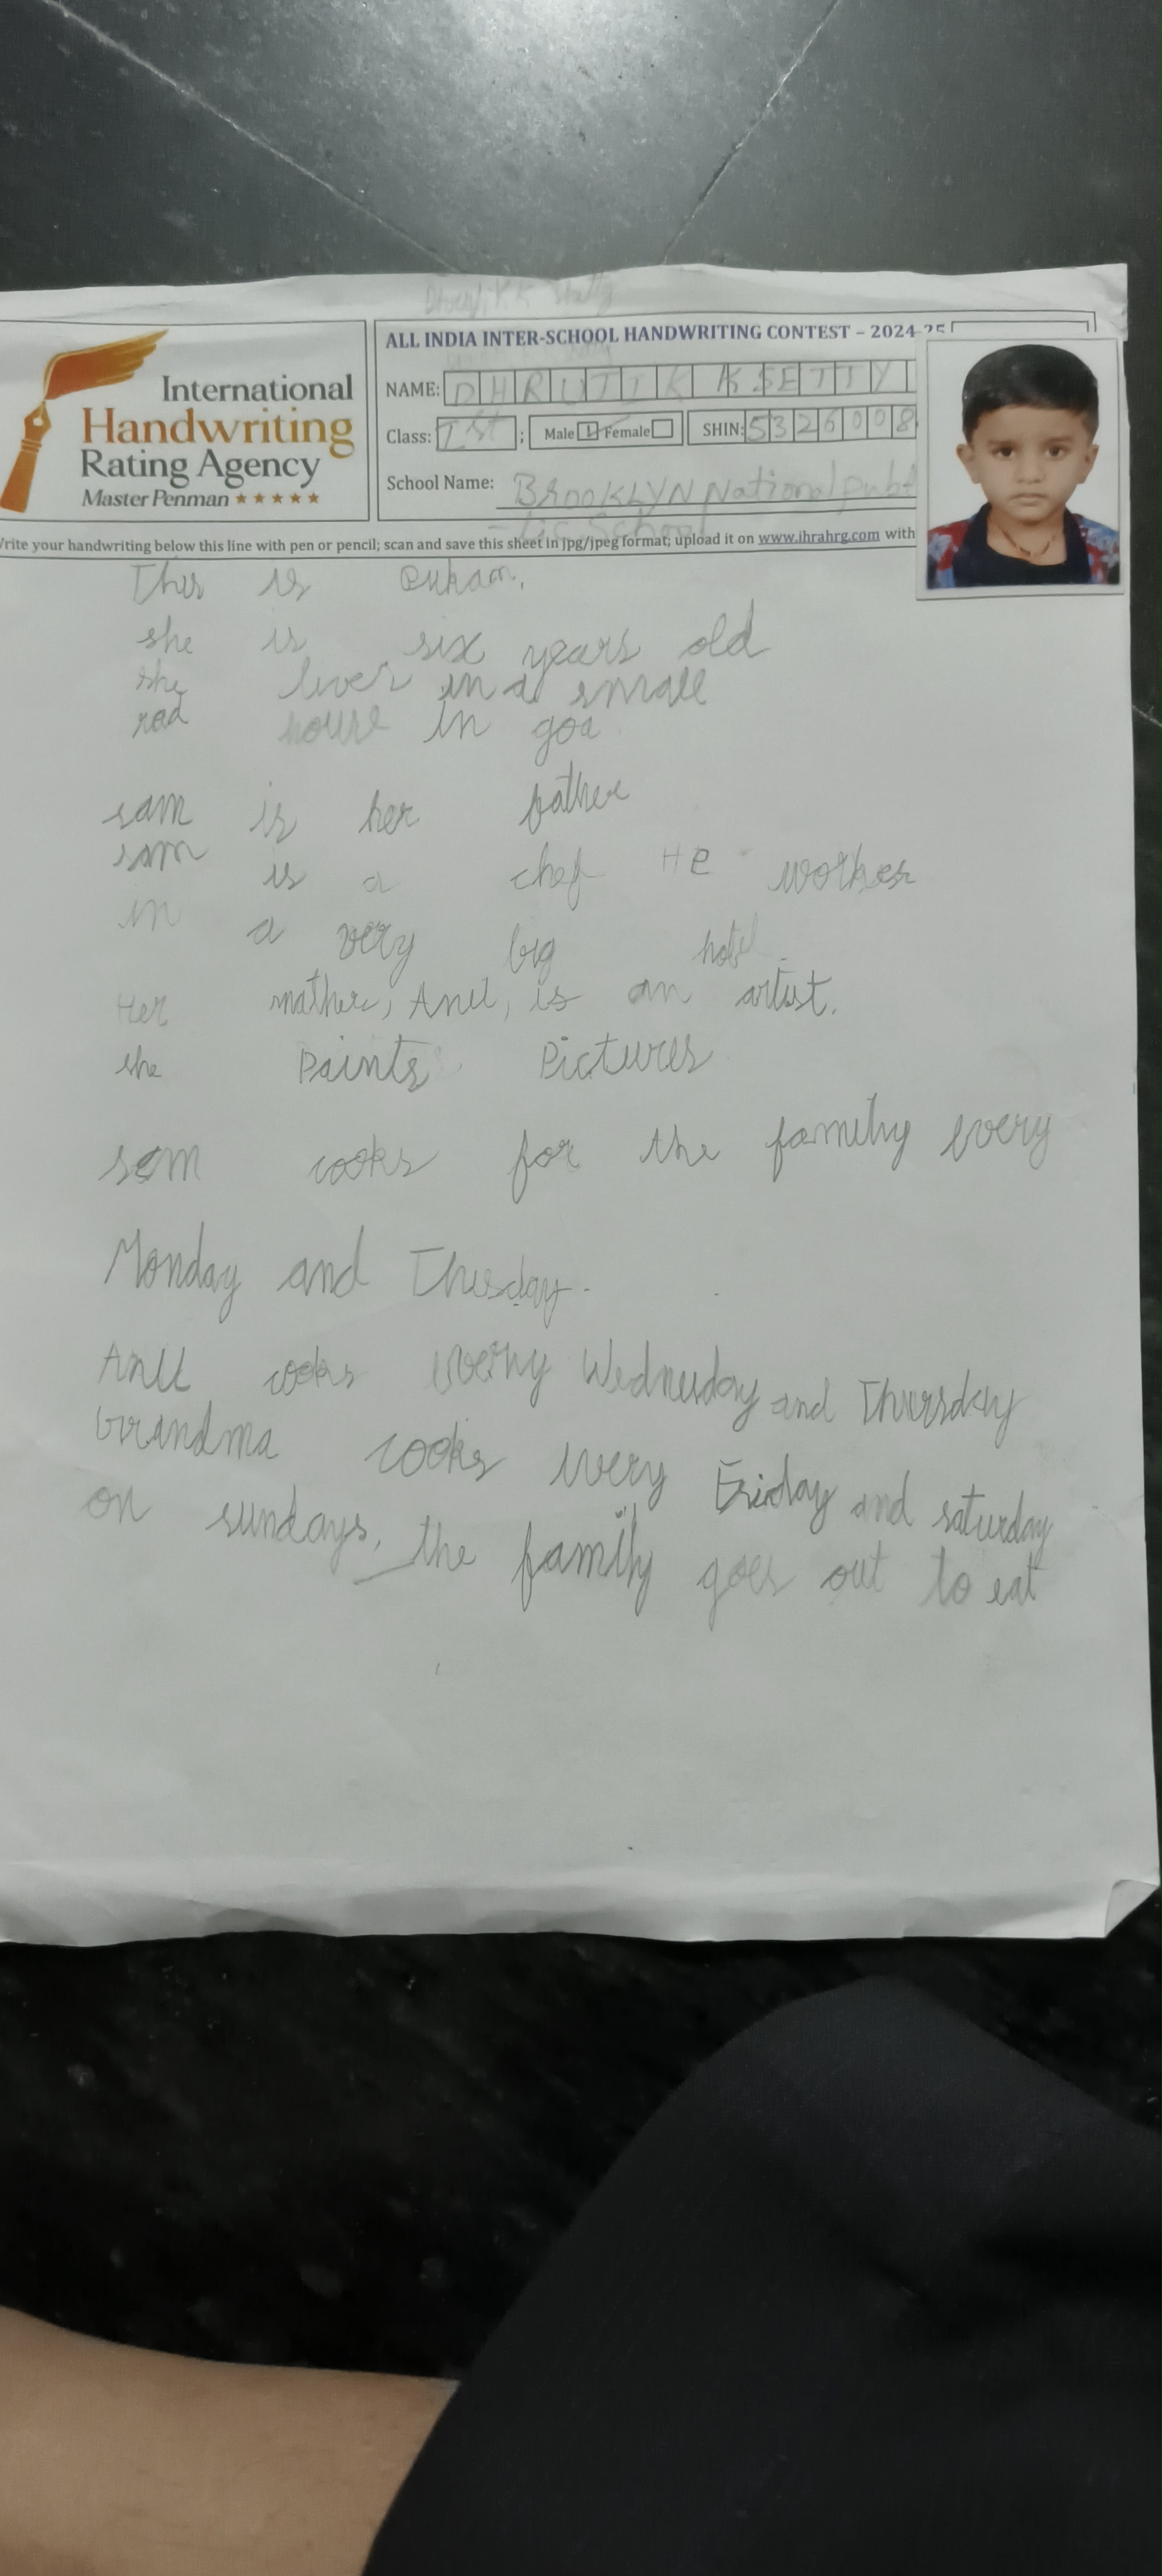 International
Handwriting
Rating Agency
Master Penman ★★★★★
ALL INDIA INTER-SCHOOL HANDWRITING CONTEST – 2024-25
NAME: DHRUTIK K SETTY
Class: Ist ; Male Female SHIN: 5326008
School Name: BROOKLYN National Pub
-lic School
Write your handwriting below this line with pen or pencil; scan and save this sheet in jpg/jpeg format; upload it on www.ihrahrg.com with
This is
she is six years old
she lives in a small
red house in goa
sam is her father
sam is a chef He works
in a very big hotel
Her mather, Anu, is an artist.
she Paints Pictures
sam cooks for the family every
Monday and Thusday.
Anu cooks every Wednesday and Thursday
Grandma cooks every Friday and saturday
on sundays, the family goes out to eat